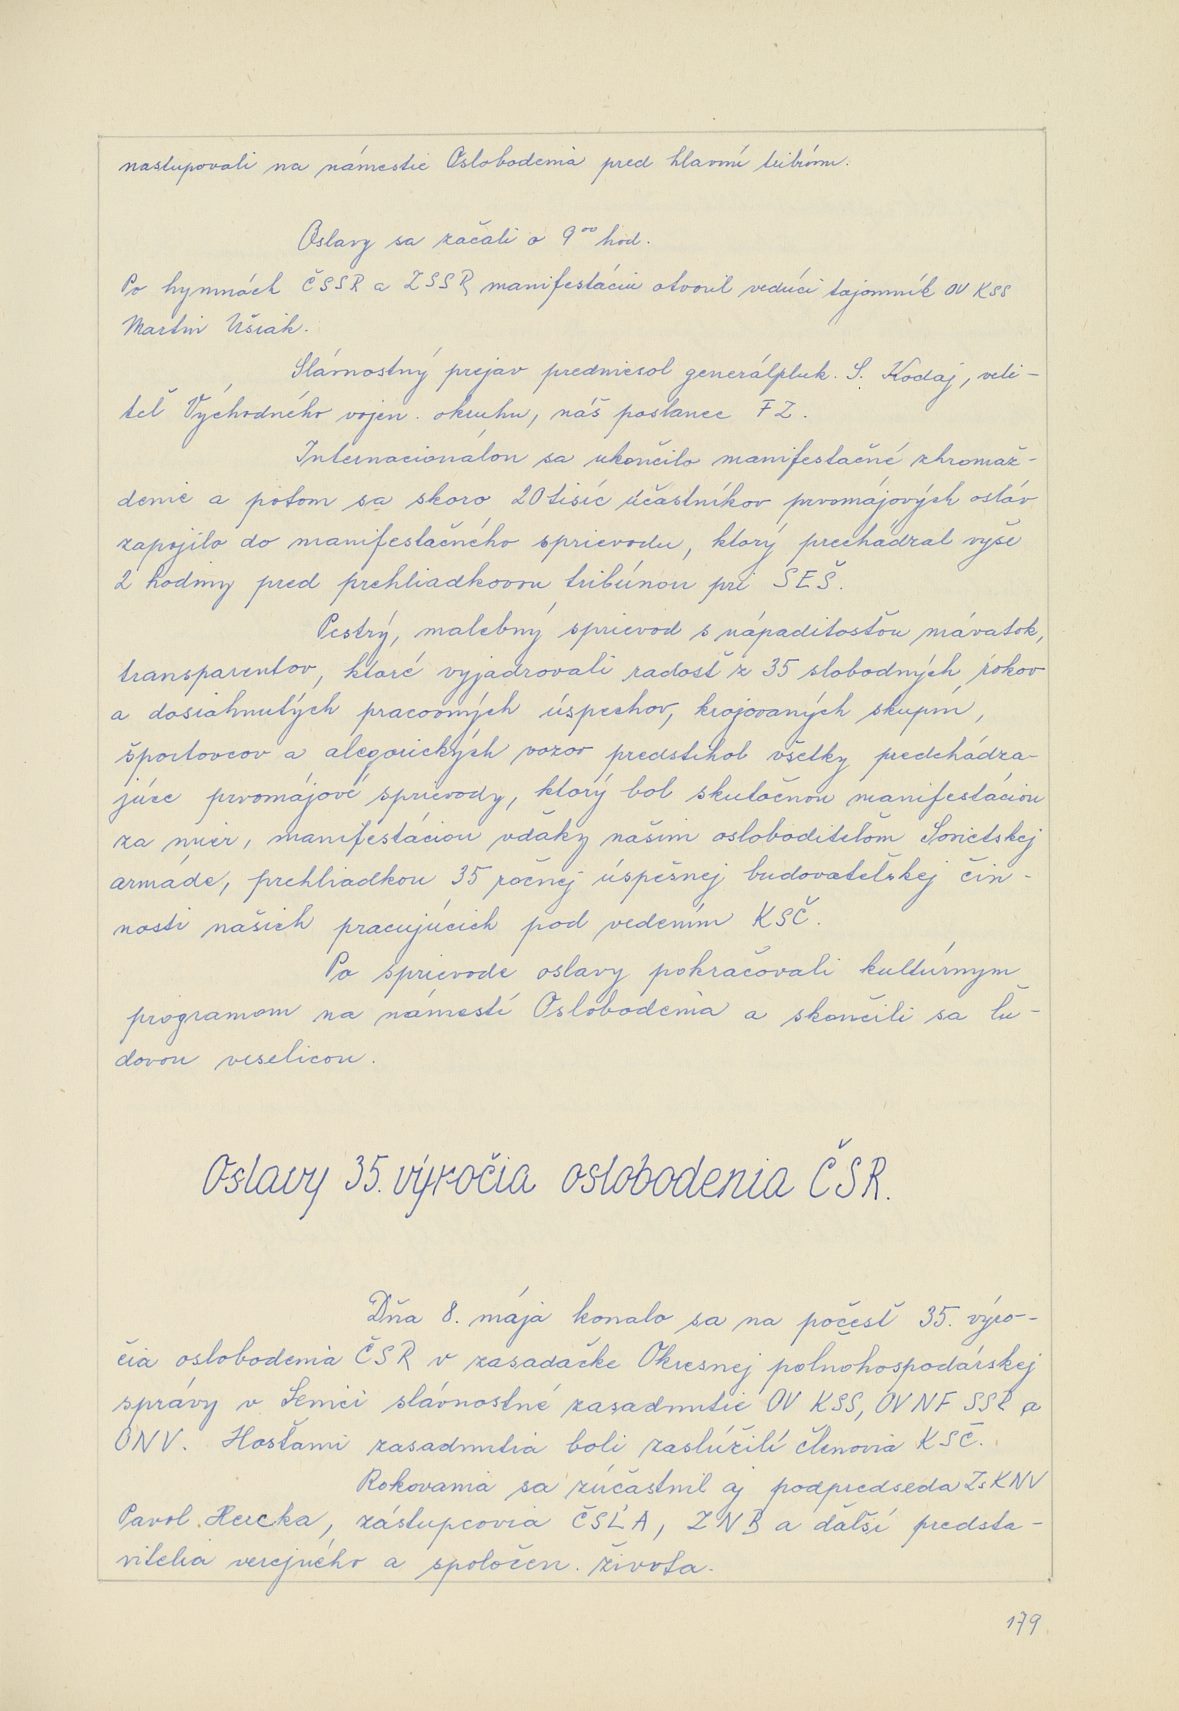 nastupovali na námestie Oslobodenia pred hlavnú tribúnu.
Oslavy sa začali o 9⁰⁰ hod.
Po hymnách ČSSR a ZSSR manifestáciu otvoril vedúci tajomník OV KSS
Martin Ušiak.
Slávnostný prejav predniesol generálpluk. S. Kodaj, veli-
teľ Východného vojen. okruhu, náš poslanec FZ.
Internacionálou sa ukončilo manifestačné zhromaž-
denie a potom sa skoro 20 tisíc účastníkov prvomájových osláv
zapojilo do manifestačného sprievodu, ktorý prechádzal vyše
2 hodiny pred prehliadkovou tribúnou pri SEŠ.
Pestrý, malebný sprievod s nápaditosťou mávatok,
transparentov, ktoré vyjadrovali radosť z 35 slobodných rokov
a dosiahnutých pracovných úspechov, krojovaných skupín,
športovcov a alegorických vozov predstihol všetky predchádza-
júce prvomájové sprievody, ktorý bol skutočnou manifestáciou
za mier, manifestáciou vďaky našim osloboditeľom Sovietskej
armáde, prehliadkou 35 ročnej úspešnej budovateľskej čin-
nosti našich pracujúcich pod vedením KSČ.
Po sprievode oslavy pokračovali kultúrnym
programom na námestí Oslobodenia a skončili sa ľu-
dovou veselicou.
Oslavy 35. výročia oslobodenia ČSR.
Dňa 8. mája konalo sa na počesť 35. výro-
čia oslobodenia ČSR v zasadačke Okresnej poľnohospodárskej
správy v Senici slávnostné zasadnutie OV KSS, OV NF SSR a
ONV. Hosťami zasadnutia boli zaslúžilí členovia KSČ.
Rokovania sa zúčastnil aj podpredseda ZsKNV
Pavol Hercka, zástupcovia ČSĽA, ZNB a ďalší predsta-
vitelia verejného a spoločen. života.
179